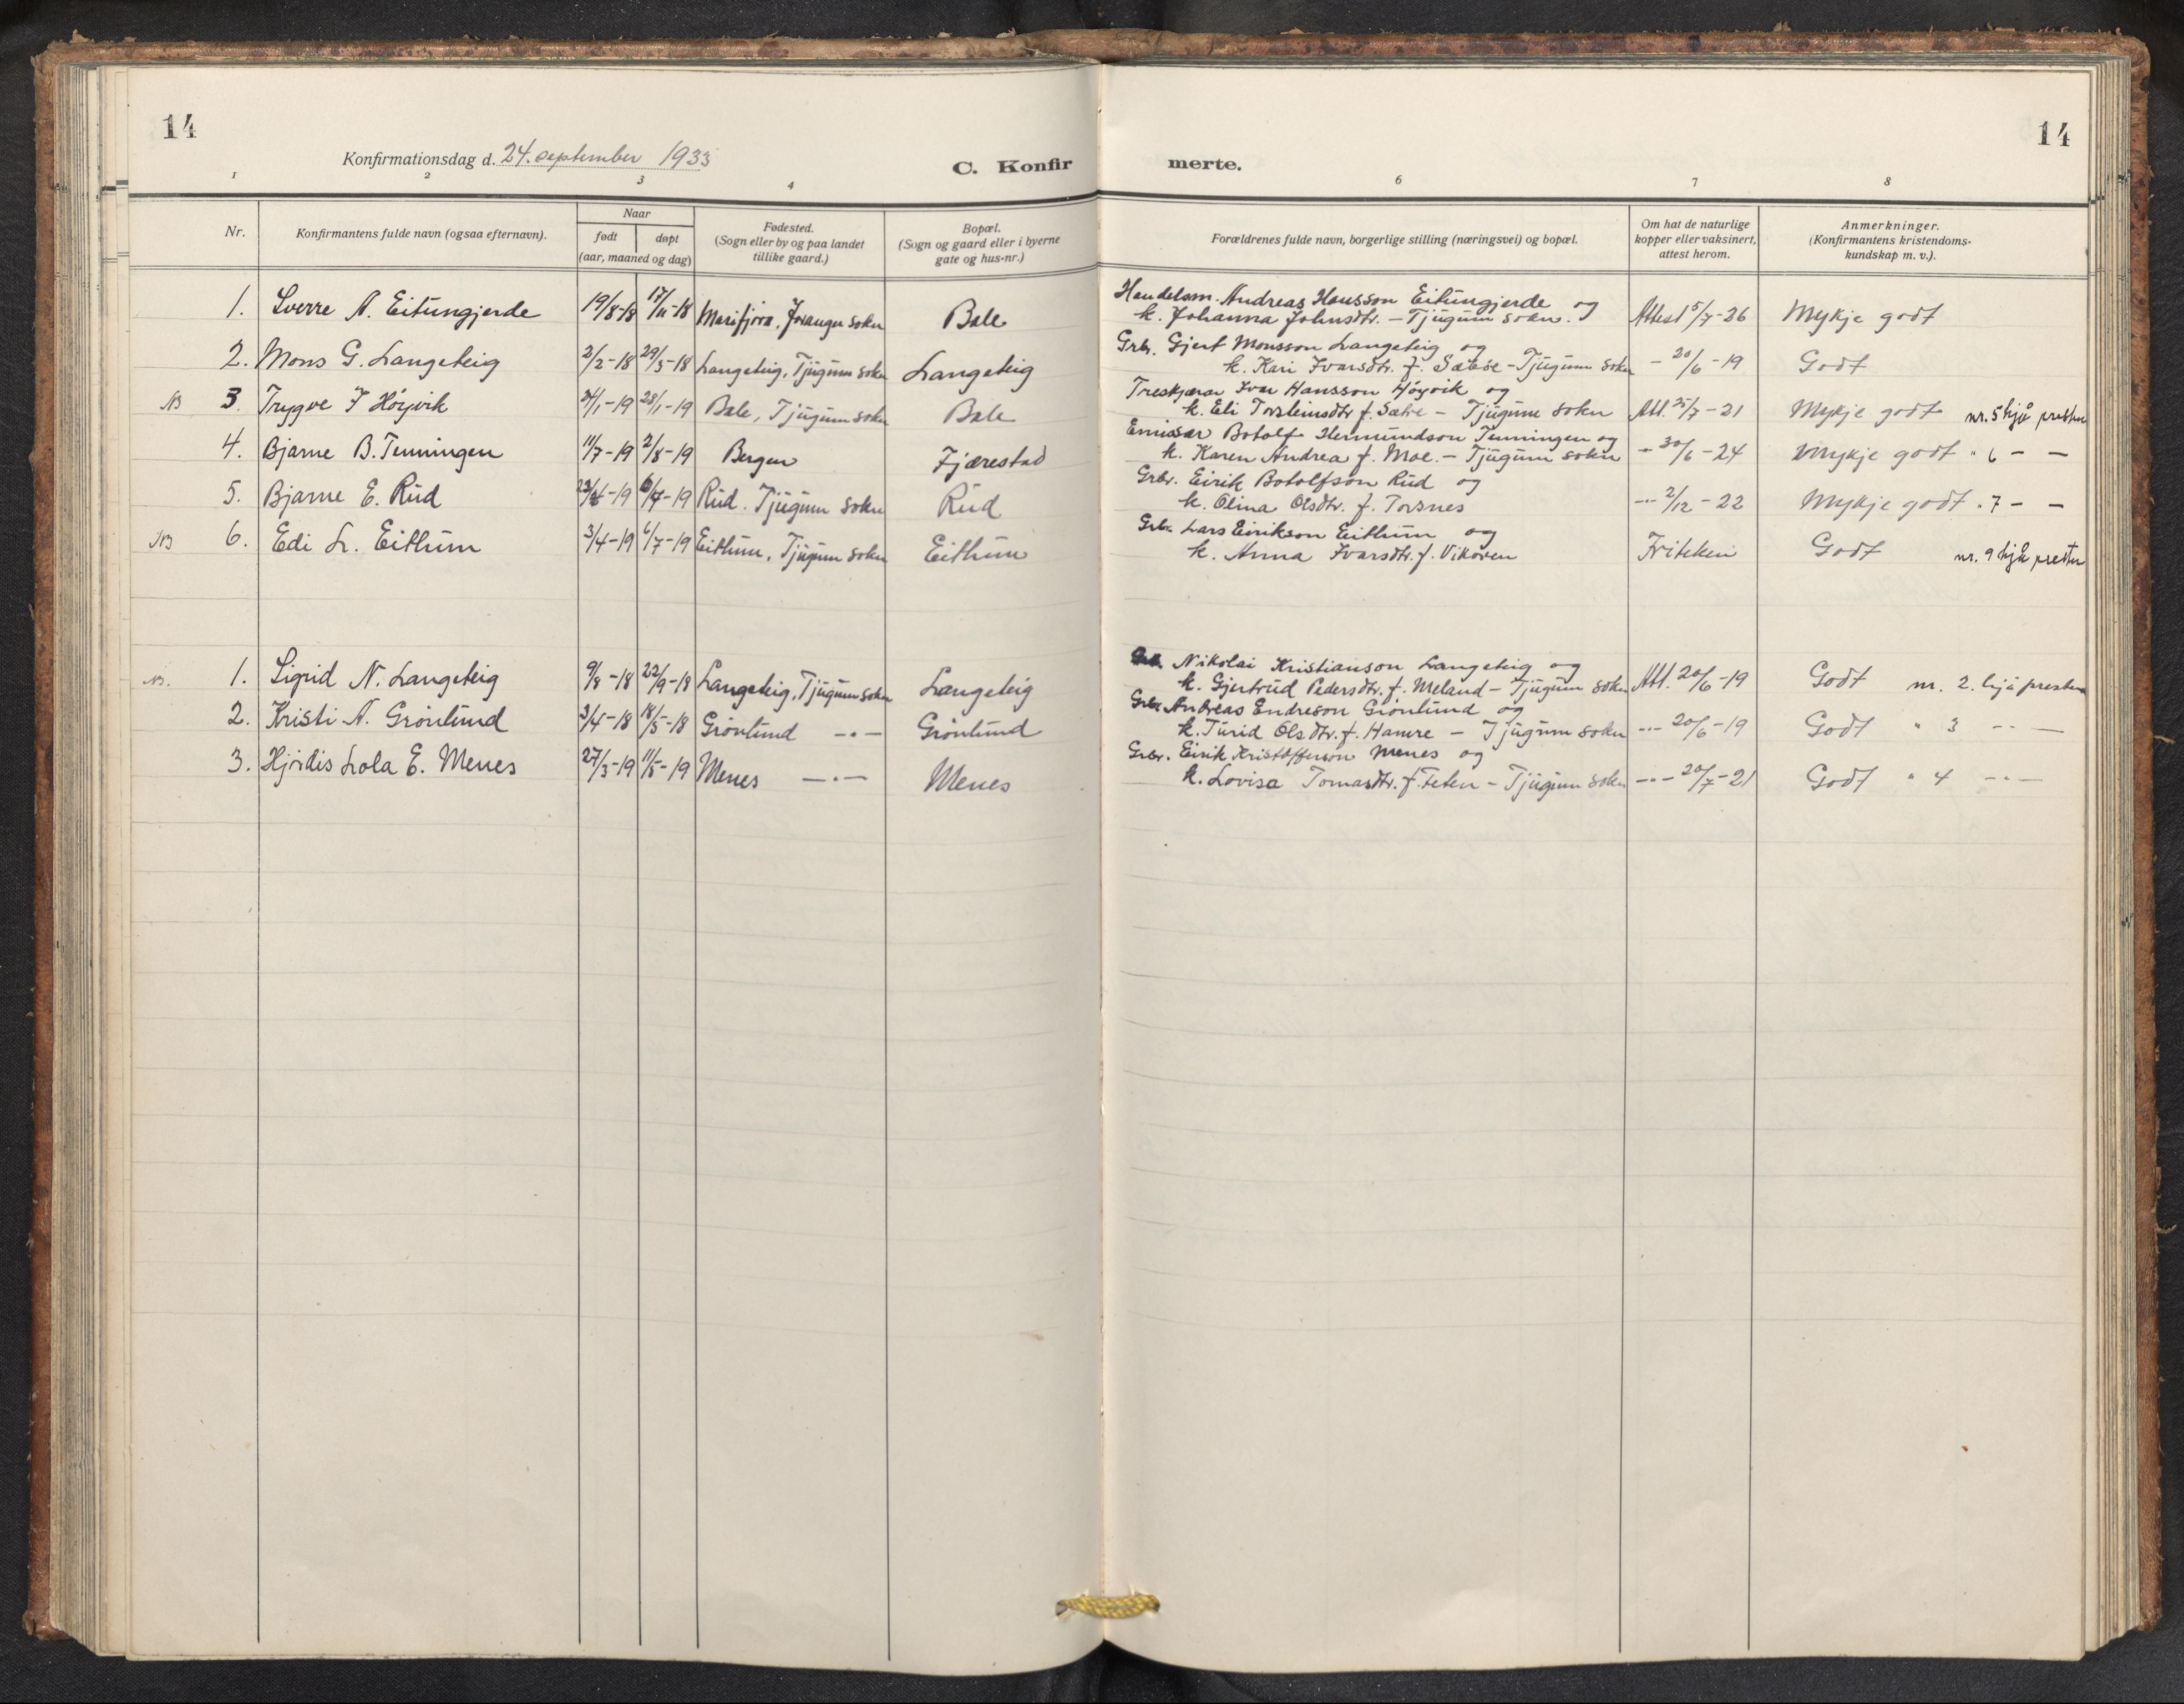 14
14
Konfirmationsdag d. 24. september 1933
C. Konfir merte.
1 2 3 4 6 7 8
Nr.
Konfirmantens fulde navn (ogsaa efternavn).
Naar
født
døpt
(aar, maaned og dag)
Fødested.
(Sogn eller by og paa landet
tillike gaard.)
Bopæl.
(Sogn og gaard eller i byerne
gate og hus-nr.)
Forældrenes fulde navn, borgerlige stilling (næringsvei) og bopæl.
Om hat de naturlige
kopper eller vaksinert,
attest herom.
Anmerkninger.
(Konfirmantens kristendoms-
kundskap m. v.).
1. Sverre A. Eitungjerde 19/8-18 17/11-18 Marifjøra, Joranger sokn Bale
Handelsm. Andreas Hansson Eitungjerde og
k. Johanna Johnsdtr. - Tjugum sokn. Attest 5/7-26 Mykje godt
2. Mons G. Langeteig 2/2-18 29/3-18 Langeteig, Tjugum sokn Langeteig
Grbr. Gjert Monsson Langeteig og
k. Kari Ivarsdtr. f. Sæbøe - Tjugum sokn - 20/6-19 Godt
NB 3. Trygve I Höyvik 28/1-19 Bale, Tjugum sokn Bale
Treskjærar Ivar Hansson Höyvik og
k. Eli Torsteinsdtr f. Sætre - Tjugum sokn Att. 25/7-21 Mykje godt nr. 5 hjå presten
4. Bjarne B. Tenningen 11/7-19 2/8-19 Bergen Fjærestad
Emissær Botolf Hermundson Tenningen og
k. Karen Andrea f. Moe. - Tjugum sokn - 30/6-24 Mykje godt " 6 - -
5. Bjarne E. Rud 6/7-19 Rud. Tjugum sokn Rud
Grbr. Eirik Botolfson Rud og
k. Olina Olsdtr. f. Torsnes -"- 2/12-22 Mykje godt " 7 - -
NB 6. Edi L. Eithun 3/4-19 6/7-19 Eithun, Tjugum sokn Eithun
Grbr. Lars Eirikson Eithun og
k. Anna Ivarsdtr. f. Vikören Friteken Godt nr. 9 hjå presten
NB. 1. Sigrid N. Langeteig 9/8-18 22/9-18 Langeteig, Tjugum sokn Langeteig
Grb. Nikolai Kristianson Langeteig og
k. Gjertrud Pedersdtr. f. Meland - Tjugum sokn Att. 20/6-19 Godt nr. 2. hjå presten
2. Kristi A. Grönlund 3/4-18 18/5-18 Grönlund -"- Grönlund
Grbr Andreas Endreson Grönlund og
k. Turid Olsdtr. f. Hamre - Tjugum sokn -"- 20/6-19 Godt " 3 -"-
3. Hjördis Lola E. Menes 27/3-19 11/5-19 Menes -"- Menes
Grbr. Eirik Kristofferson Menes og
k. Lovisa Tomasdtr. f. Feten - Tjugum sokn -"- 20/7-21 Godt " 4 -"-